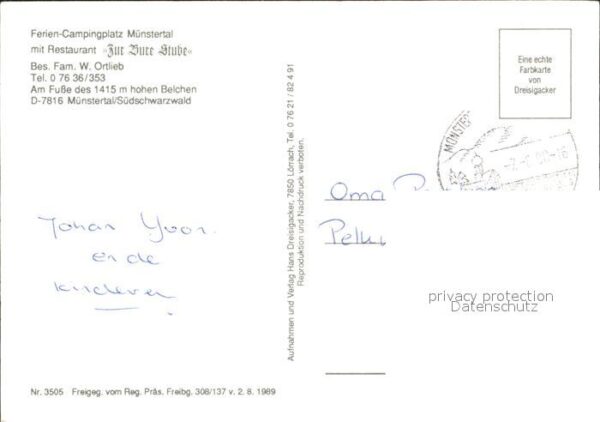 Ferien-Campingplatz Münstertal
mit Restaurant »Zur Bure Stube«
Bes. Fam. W. Ortlieb
Tel. 0 76 36/353
Am Fuße des 1415 m hohen Belchen
D-7816 Münstertal/Südschwarzwald
Johan Yvon
en de
kinderen
Nr. 3505 Freigeg. vom Reg. Präs. Freibg. 308/137 v. 2. 8. 1989
Aufnahmen und Verlag Hans Dreisigacker, 7850 Lörrach, Tel. 0 76 21 / 82 4 91
Reproduktion und Nachdruck verboten.
Eine echte
Farbkarte
von
Dreisigacker
MÜNSTER
Oma
privacy protection
Datenschutz